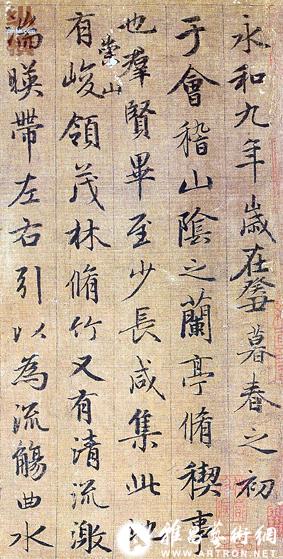 永和九年歲在癸丑暮春之初
于會稽山陰之蘭亭脩稧事
也羣賢畢至少長咸集此地
有崇山峻領茂林脩竹又有清流激
湍暎帶左右引以為流觴曲水
雅昌藝術網
WWW.ARTRON.NET